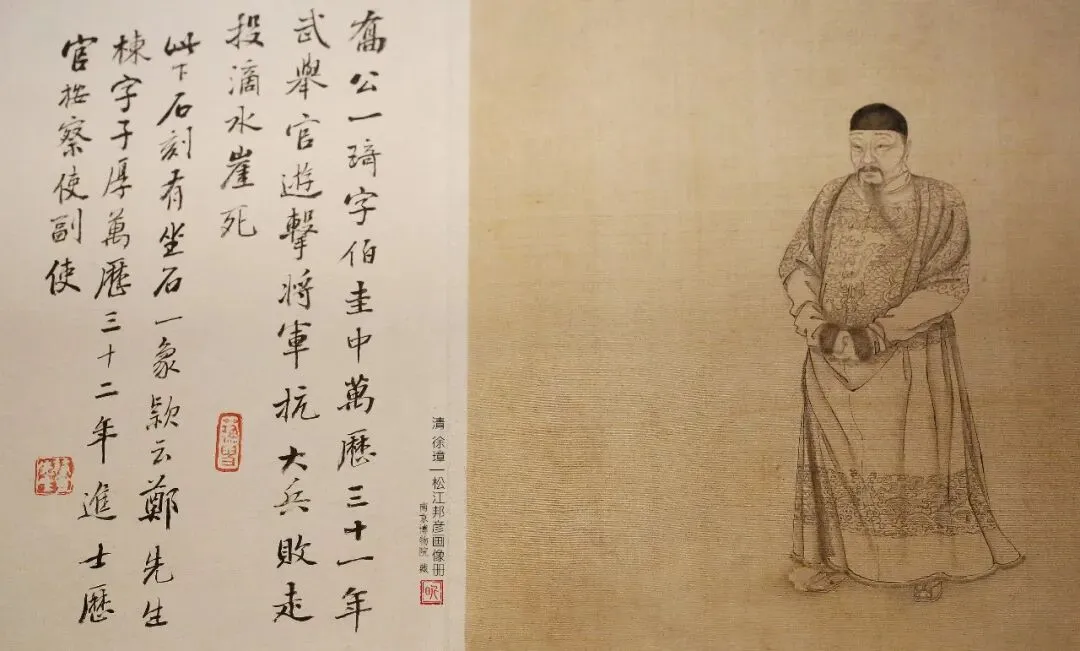 喬公一琦字伯圭中萬曆三十一年
武舉官遊擊將軍抗大兵敗走
投滴水崖死
此下石刻有坐石一象款云鄭先生
棟字子厚萬曆三十二年進士歷
官按察使副使
清 徐璋—松江邦彦画像册
南京博物院 藏